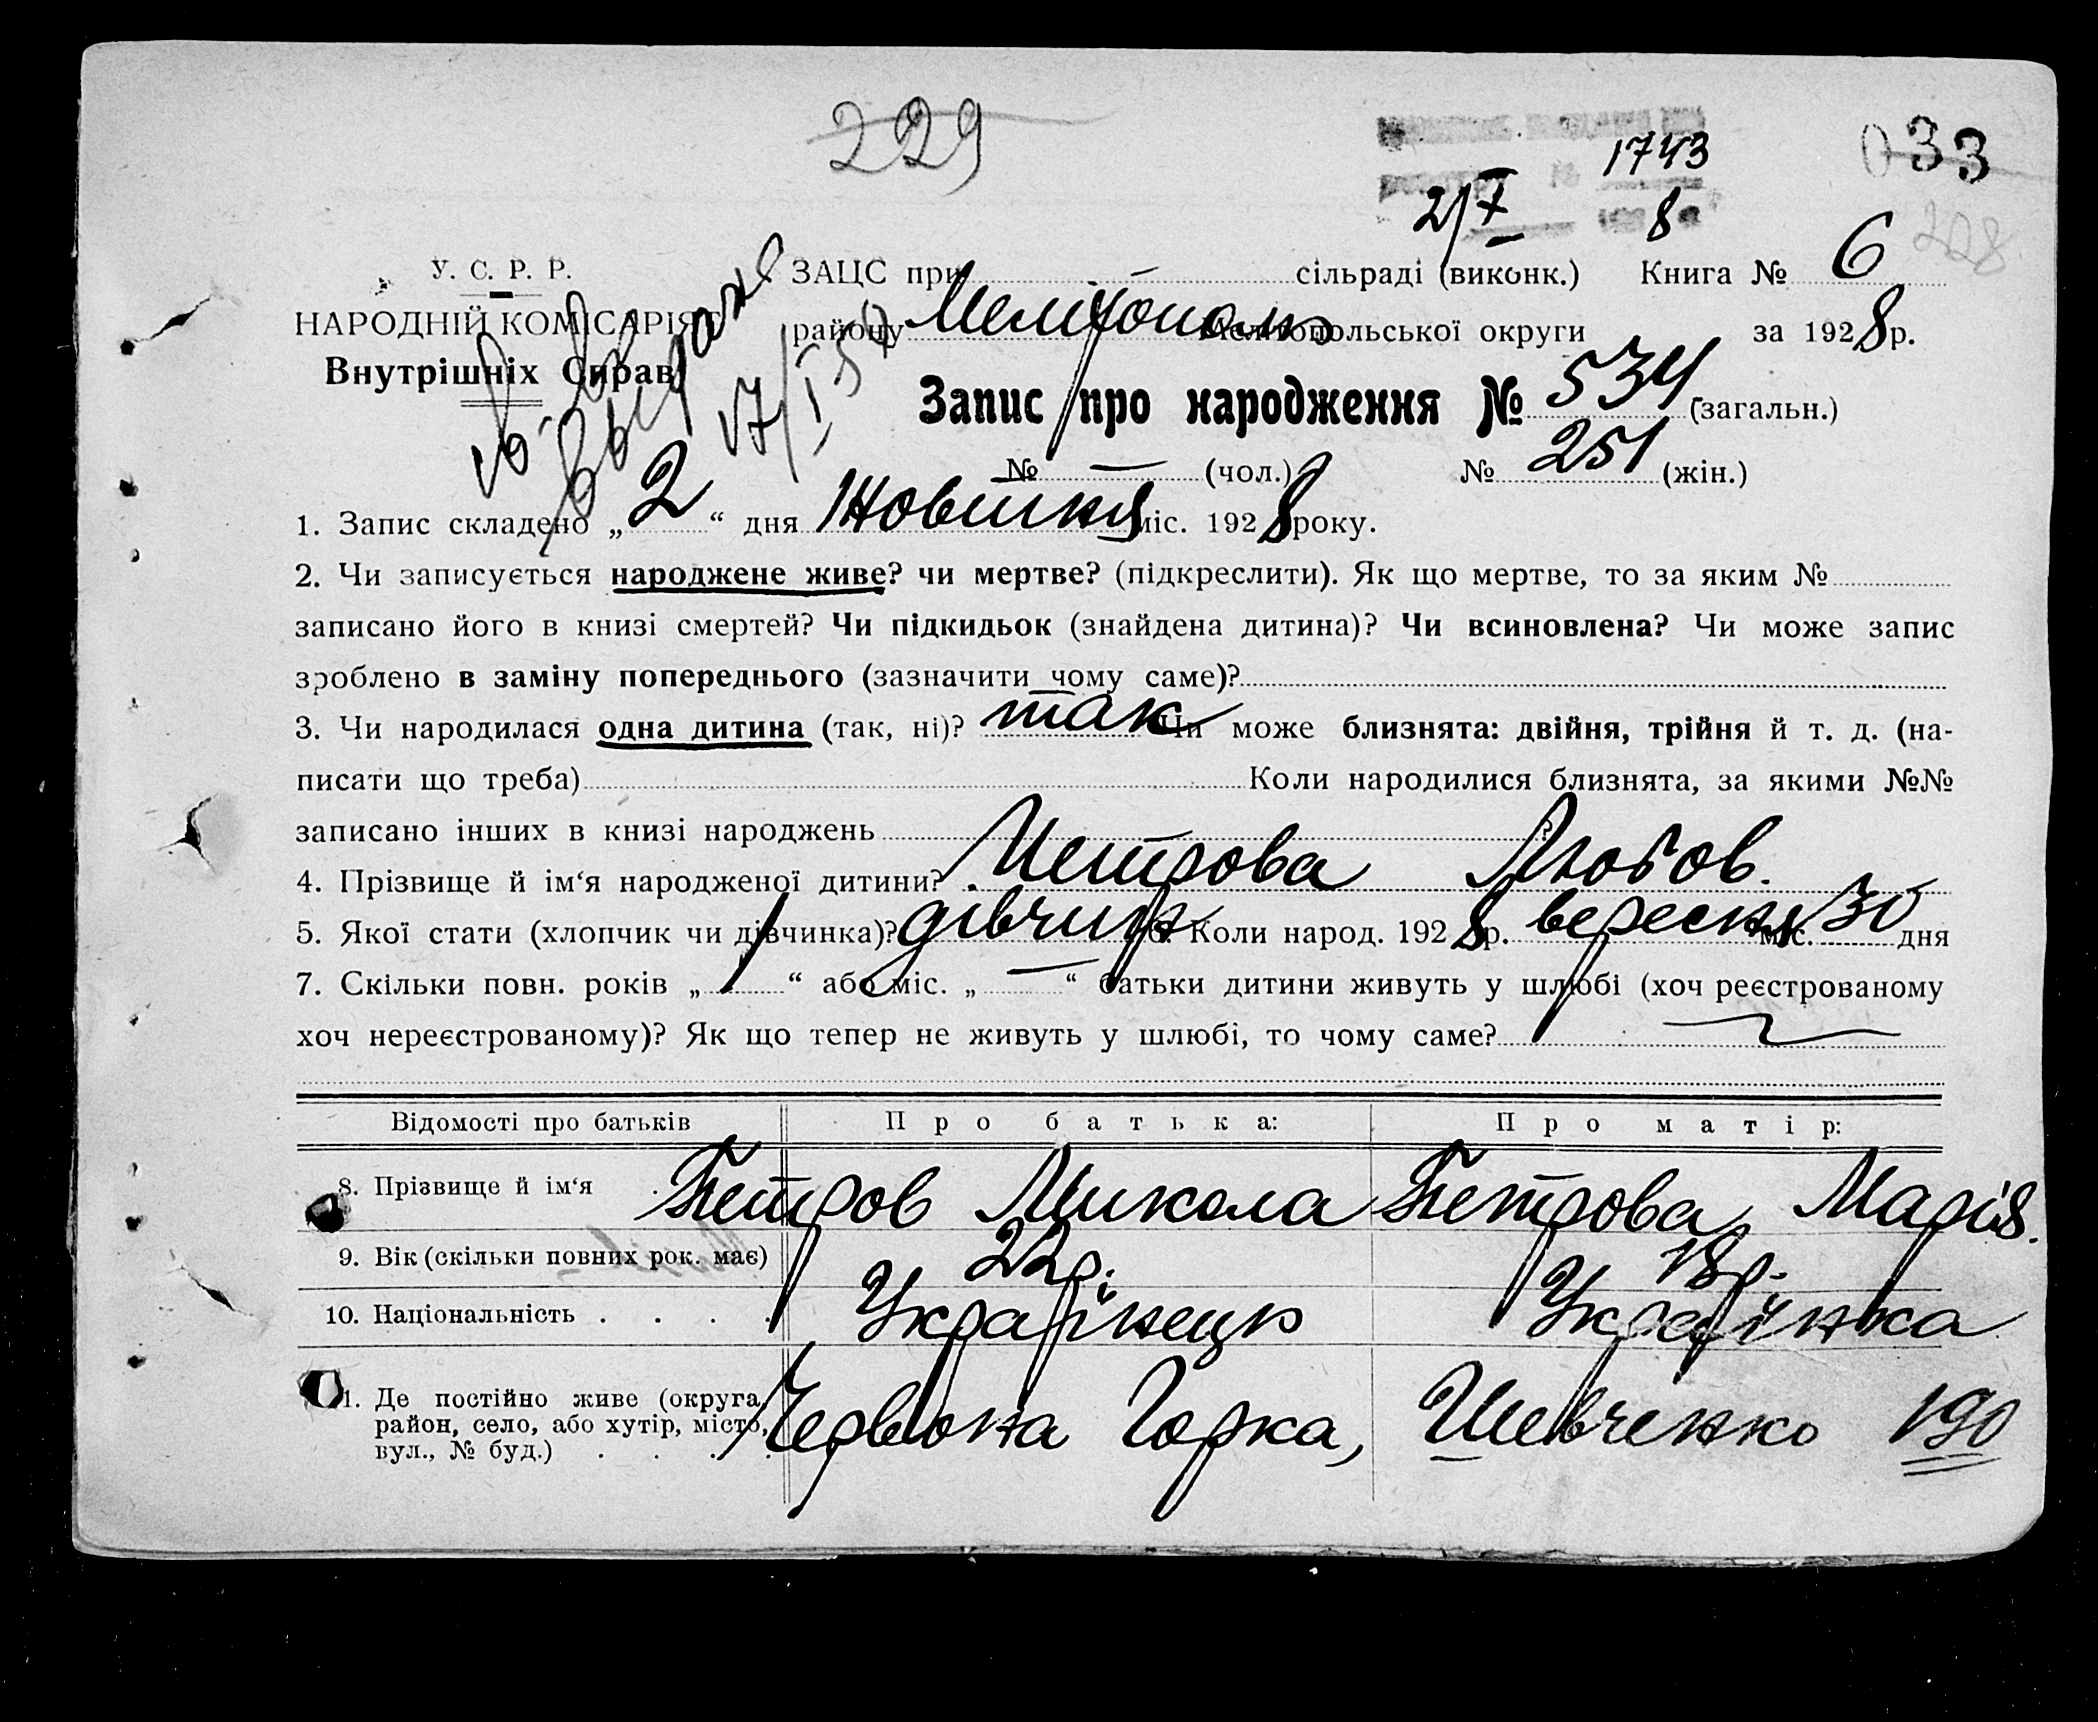 229
1743
033
2/X 8
228
У. С. Р. Р.
ЗАЦС при — сільраді (виконк.) Книга № 6
НАРОДНІЙ КОМІСАРІЯТ
району Мелітополь Мелітопольської округи за 1928 р.
Внутрішніх Справ
Запис про народження № 534 (загальн.)
№ — (чол.) № 251 (жін.)
1. Запис складено „2“ дня Жовтня міс. 1928 року.
2. Чи записується народжене живе? чи мертве? (підкреслити). Як що мертве, то за яким №
записано його в книзі смертей? Чи підкидьок (знайдена дитина)? Чи всиновлена? Чи може запис
зроблено в заміну попереднього (зазначити чому саме)?
3. Чи народилася одна дитина (так, ні)? так Чи може близнята: двійня, трійня й т. д. (на-
писати що треба) Коли народилися близнята, за якими №№
записано інших в книзі народжень ?
4. Прізвище й ім‘я народженої дитини? Петрова Любов.
5. Якої стати (хлопчик чи дівчинка)? дівчин 6. Коли народ. 1928 р. вересня міс. 30 дня
7. Скільки повн. років „1“ або міс. „—“ батьки дитини живуть у шлюбі (хоч реєстрованому
хоч нереєстрованому)? Як що тепер не живуть у шлюбі, то чому саме?
Відомості про батьків Про батька: Про матір:
8. Прізвище й ім‘я Петров Микола Петрова Марія.
9. Вік (скільки повних рок. має) 22 р. 18 р.
10. Національність . . . . Українець Українка
11. Де постійно живе (округа,
район, село, або хутір, місто, Червона Горка, Шевченко 190
вул., № буд.) . . . .